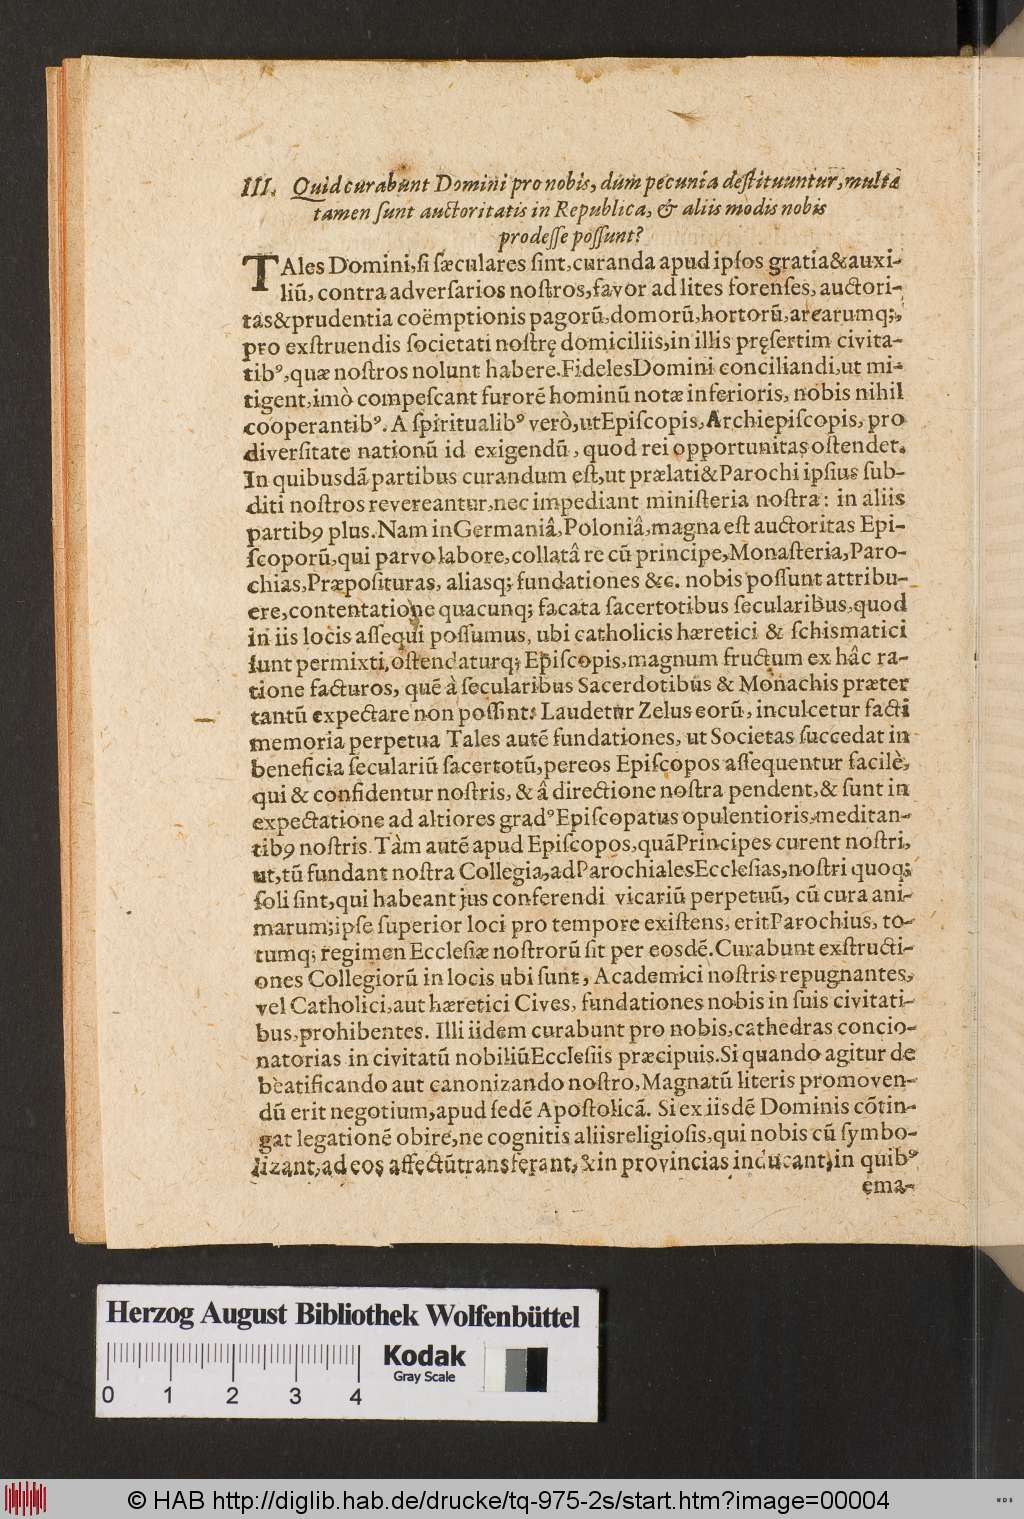 III. Quid curabunt Domini pro nobis, dum pecunia destituuntur, multæ
tamen sunt auctoritatis in Republica, & aliis modis nobis
prodesse possunt?
TAles Domini, si sæculares sint, curanda apud ipsos gratia & auxi-
liū, contra adversarios nostros, favor ad lites forenses, auctori-
tas & prudentia coëmptionis pagorū, domorū, hortorū, arearumq;,
pro exstruendis societati nostrę domiciliis, in illis pręsertim civita-
tibꝰ, quæ nostros nolunt habere. Fideles Domini conciliandi, ut mi-
tigent, imò compescant furorē hominū notæ inferioris, nobis nihil
cooperantibꝰ. A spiritualibꝰ verò, ut Episcopis, Archiepiscopis, pro
diversitate nationū id exigendū, quod rei opportunitas ostendet.
In quibusdā partibus curandum est, ut prælati & Parochi ipsius sub-
diti nostros revereantur, nec impediant ministeria nostra: in aliis
partibꝰ plus. Nam in Germaniâ, Poloniâ, magna est auctoritas Epi-
scoporū, qui parvo labore, collatâ re cū principe, Monasteria, Paro-
chias, Præposituras, aliasq; fundationes &c. nobis possunt attribu-
ere, contentatione quacunq; facata sacertotibus secularibus, quod
in iis locis assequi possumus, ubi catholicis hæretici & schismatici
sunt permixti, ostendaturq; Episcopis, magnum fructum ex hâc ra-
tione facturos, quē à secularibus Sacerdotibus & Monachis præter
tantū expectare non possint: Laudetur Zelus eorū, inculcetur facti
memoria perpetua Tales autē fundationes, ut Societas succedat in
beneficia seculariū sacertotū, per eos Episcopos assequentur facilè,
qui & confidentur nostris, & â directione nostra pendent, & sunt in
expectatione ad altiores gradꝰ Episcopatus opulentioris, meditan-
tibꝰ nostris. Tàm autē apud Episcopos, quā Principes curent nostri,
ut, tū fundant nostra Collegia, ad Parochiales Ecclesias, nostri quoq;
soli sint, qui habeant jus conferendi vicariū perpetuū, cū cura ani-
marum; ipse superior loci pro tempore existens, erit Parochius, to-
tumq; regimen Ecclesiæ nostrorū sit per eosdē. Curabunt exstructi-
ones Collegiorū in locis ubi sunt, Academici nostris repugnantes,
vel Catholici, aut hæretici Cives, fundationes nobis in suis civitati-
bus, prohibentes. Illi iidem curabunt pro nobis, cathedras concio-
natorias in civitatū nobiliū Ecclesiis præcipuis. Si quando agitur de
beatificando aut canonizando nostro, Magnatū literis promoven-
dū erit negotium, apud sedē Apostolicā. Si ex iisdē Dominis cōtin-
gat legationē obire, ne cognitis aliis religiosis, qui nobis cū symbo-
lizant, ad eos affectū transferant, & in provincias inducant, in quibꝰ
ema-
Herzog August Bibliothek Wolfenbüttel
Kodak
Gray Scale
0 1 2 3 4
© HAB http://diglib.hab.de/drucke/tq-975-2s/start.htm?image=00004